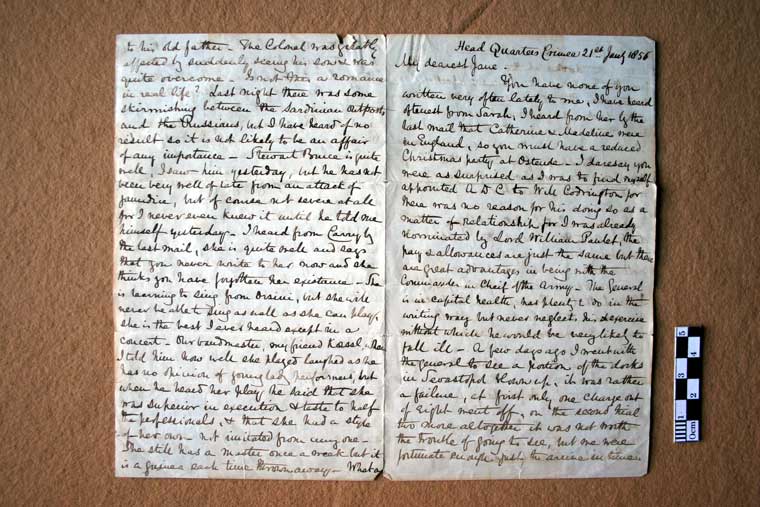 Head Quarters Crimea 21st Jany 1856
My dearest Jane.
You have none of you
written very often lately to me, I have heard
oftenest from Sarah, I heard from her by the
last mail that Catherine & Madeline were
in England, so you must have a reduced
Christmas party at Ostende. I daresay you
were as surprised as I was to find myself
appointed A D C to Will Codrington for
there was no reason for his doing so as a
matter of Relationship for I was already
nominated by Lord William Paulet, the
pay & allowances are just the same but there
are great advantages in being with the
Commander in Chief of the Army - The General
is in capital health, has plenty to do in the
writing way but never neglects his exercise
without which he would be very likely to
fall ill - A few days ago I went with
the General to see a portion of the docks
in Sevastopol blown up, it was rather
a failure, at first only one charge out
of eight went off, on the second trial
two more altogether it was not worth
the trouble of going to see, but we were
fortunate enough just to arrive in time
to his old father - The Colonel was greatly
affected by suddenly seeing his son & was
quite overcome - Is not this a romance
in real life? Last night there was some
skirmishing between the Sardinian outposts
and the Russians, but I have heard of no
result so it is not likely to be an affair
of any importance - Stewart Bruce is quite
well, I saw him yesterday, but he has not
been very well of late from an attack of
jaundice, but of course not severe at all
for I never even knew it until he told me
himself yesterday - I heard from Carry by
the last mail, she is quite well and says
that you never write to her now and she
thinks you have forgotten her existence - She
is learning to sing from Orsini, but she will
never be able to sing as well as she can play,
she is the best I ever heard except in a
concert - Our bandmaster, my friend Kassel, when
I told him how well she played laughed as he
has no opinion of young lady performers, but
when he heard her play he said that she
was superior in execution & taste to half
the professionals, & that she had a style
of her own not imitated from any one -
She still has a master once a week but it
is a guinea each time thrown away - What a
0cm 1 2 3 4 5